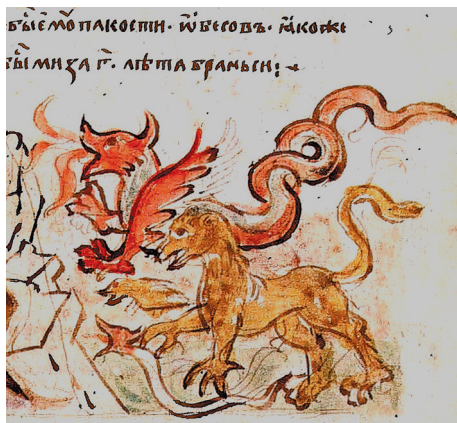 бы́ емо̀ пакости· ѿ бесовъ· ꙗ҆коже
бы́ ми за г҃· лѣта браньси;